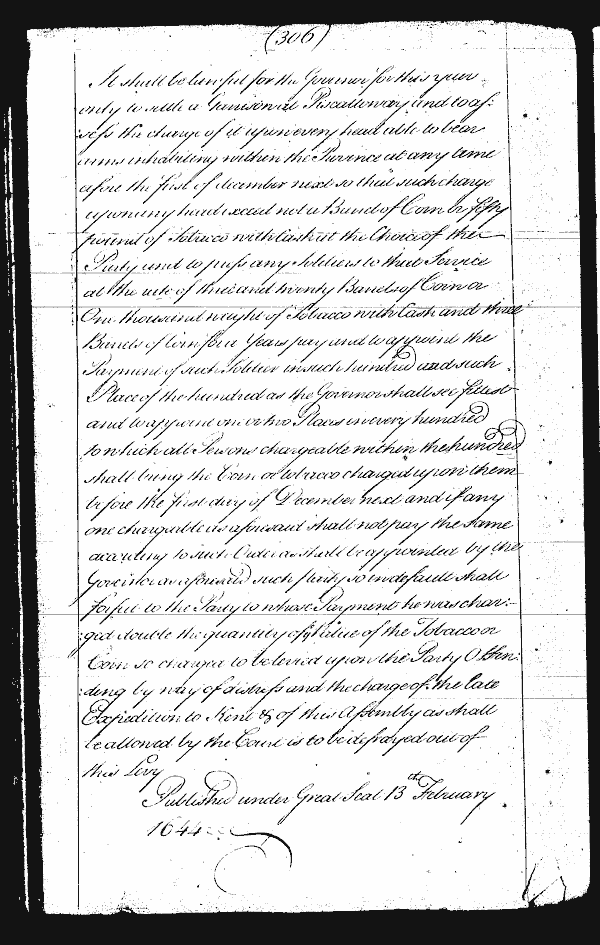 (306)
It shall be lawful for the Governor for this year
only to settle a Garrison at Piscattoway and to as:
sess the charge of it upon every head able to bear
arms inhabiting within the Province at any time
afore the first of december next so that such charge
upon any head exceed not a Barrel of Corn or fifty
pound of Tobacco with Cask at the Choice of the
Party and to press any Soldiers to that Service
at the rate of three and twenty Barrels of Corn or
One thousand weight of Tobacco with Cash and three
Barrels of Corn for a Years pay and to appoint the
Payment of such Soldier in such hundred and such
Place of the hundred as the Governor shall see fittest
and to appoint one or two Places in every hundred
to which all Persons chargeable within the hundred
shall bring the Corn or tobacco charged upon them
before the first day of December next and if any
one chargeable as aforesaid shall not pay the same
according to such Order as shall be appointed by the
Governor as aforesaid such party so in default shall
forfeit to the Party to whose Payment he was char:
ged double the quantity of Value of the Tobacco or
Corn so charged to be levied upon the Party Offen:
ding by way of distress and the charge of the late
Expedition to Kent & of this Assembly as shall
be allowed by the Court is to be defrayed out of
this Levy
Published under Great Seal 13th February
1644